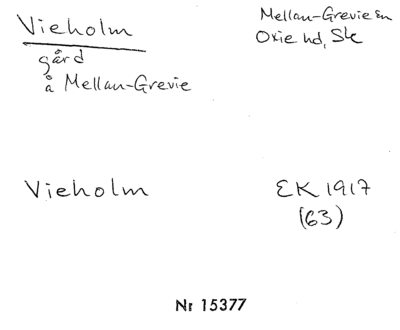 Vieholm
gård
å Mellan-Grevie
Mellan-Grevie sn
Oxie hd, Sk
Vieholm
EK 1917
(63)
Nr 15377